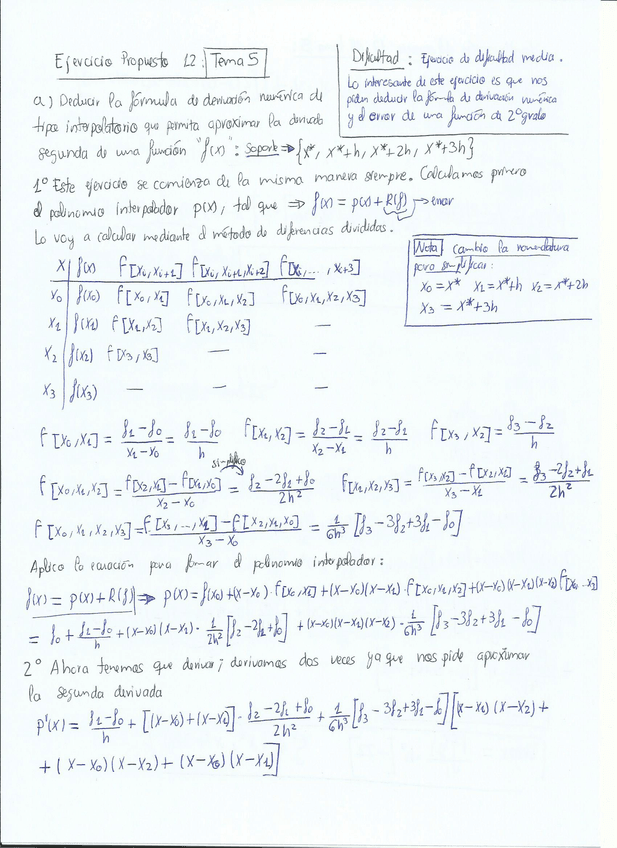 Ejercicio Propuesto 12: Tema 5
Dificultad: Ejercicio de dificultad media.
Lo interesante de este ejercicio es que nos
piden deducir la fórmula de derivación numérica
y el error de una función de 2º grado
a) Deducir la fórmula de derivación numérica de
tipo interpolatorio que permita aproximar la derivada
segunda de una función "f(x)": Soporte ⇒ {x*, x*+h, x*+2h, x*+3h}
1º Este ejercicio se comienza de la misma manera siempre. Calculamos primero
el polinomio interpolador p(x), tal que ⇒ f(x) = p(x) + R(f) → error
Lo voy a calcular mediante el método de diferencias divididas.
Nota: cambio la nomenclatura
para simplificar:
x0 = x* x1 = x*+h x2 = x*+2h
x3 = x*+3h
x f(x) f[xi, xi+1] f[xi, xi+1, xi+2] f[xi, ..., xi+3]
x0 f(x0) f[x0, x1] f[x0, x1, x2] f[x0, x1, x2, x3]
x1 f(x1) f[x1, x2] f[x1, x2, x3] —
x2 f(x2) f[x3, x3] — —
x3 f(x3) — — —
f[x0, x1] = (f1-f0)/(x1-x0) = (f1-f0)/h f[x1, x2] = (f2-f1)/(x2-x1) = (f2-f1)/h f[x3, x2] = (f3-f2)/h
simplifico
f[x0, x1, x2] = (f[x2,x1] - f[x1,x0])/(x2-x0) = (f2-2f1+f0)/2h² f[x1, x2, x3] = (f[x3,x2] - f[x2,x1])/(x3-x1) = (f3-2f2+f1)/2h²
f[x0, x1, x2, x3] = (f[x3, ..., x1] - f[x2, x1, x0])/(x3-x0) = 1/6h³ [f3-3f2+3f1-f0]
Aplico la ecuación para formar el polinomio interpolador:
f(x) = p(x) + R(f) ⇒ p(x) = f(x0) + (x-x0)·f[x0,x1] + (x-x0)(x-x1)·f[x0,x1,x2] + (x-x0)(x-x1)(x-x2) f[x0...x3]
= f0 + (f1-f0)/h + (x-x0)(x-x1)·1/2h² [f2-2f1+f0] + (x-x0)(x-x1)(x-x2)·1/6h³ [f3-3f2+3f1-f0]
2º Ahora tenemos que derivar; derivamos dos veces ya que nos pide aproximar
la segunda derivada
p'(x) = (f1-f0)/h + [(x-x0)+(x-x1)]·(f2-2f1+f0)/2h² + 1/6h³ [f3-3f2+3f1-f0] [(x-x1)(x-x2) +
+ (x-x0)(x-x2) + (x-x0)(x-x1)]